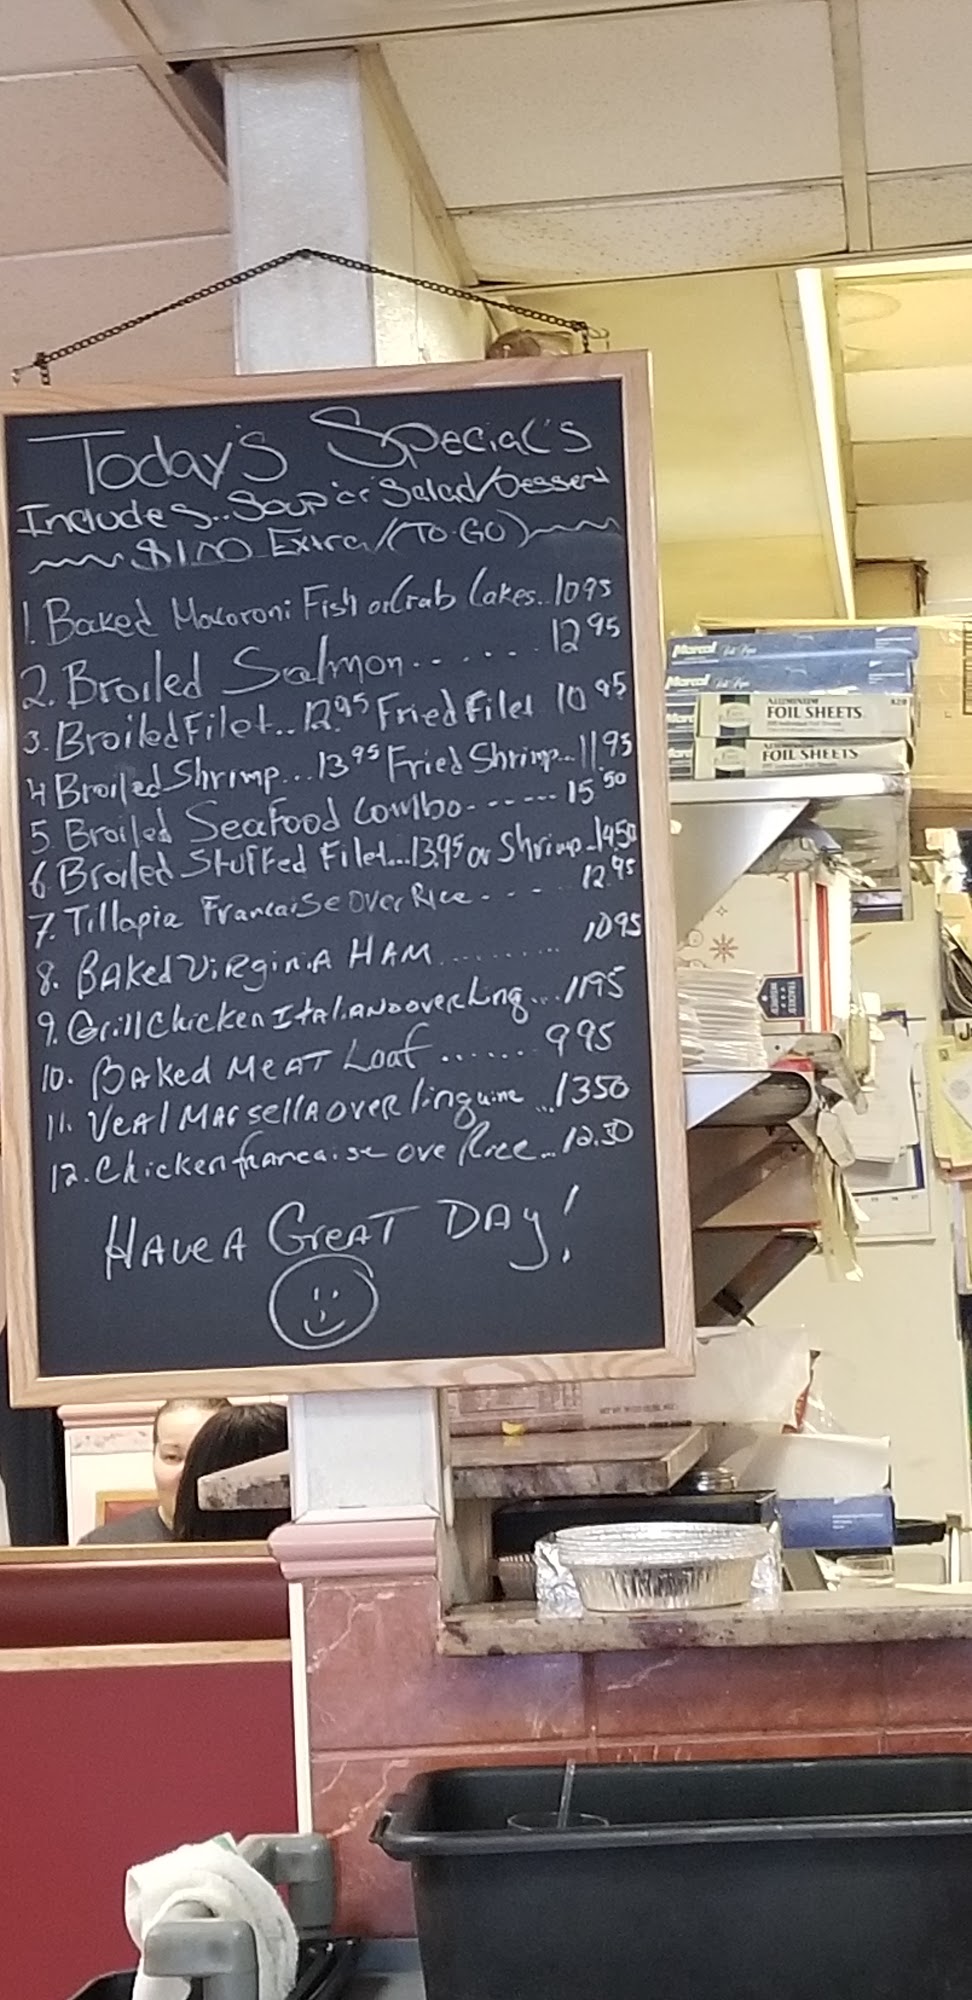 Today's Special's
Includes..Soup or Salad/Dessert
$1.00 Extra/(To-Go)
1. Baked Macaroni Fish or Crab Cakes..1095
2. Broiled Salmon....... 12 95
3. Broiled Filet.. 12.95 Fried Filet 10 95
4 Broiled Shrimp...13 95 Fried Shrimp..11 95
5 Broiled Seafood Combo------ 15 50
6 Broiled Stuffed Filet...13.95 or Shrimp..1450
7. Tillapia Francaise Over Rice. - - - 12.95
8. BAKed VirginiA HAM.......... 1095
9. Grill Chicken ItALiANO over Ling...1195
10. BAked MeAT LoaF....... 995
11. VeAl MArsellA over linguine ...1350
12. Chicken francaise ove Rice...12.50
HAve A GreAT DAy!
Marcal
Marcal
ALUMINUM
FOIL SHEETS
ALUMINUM
FOIL SHEETS